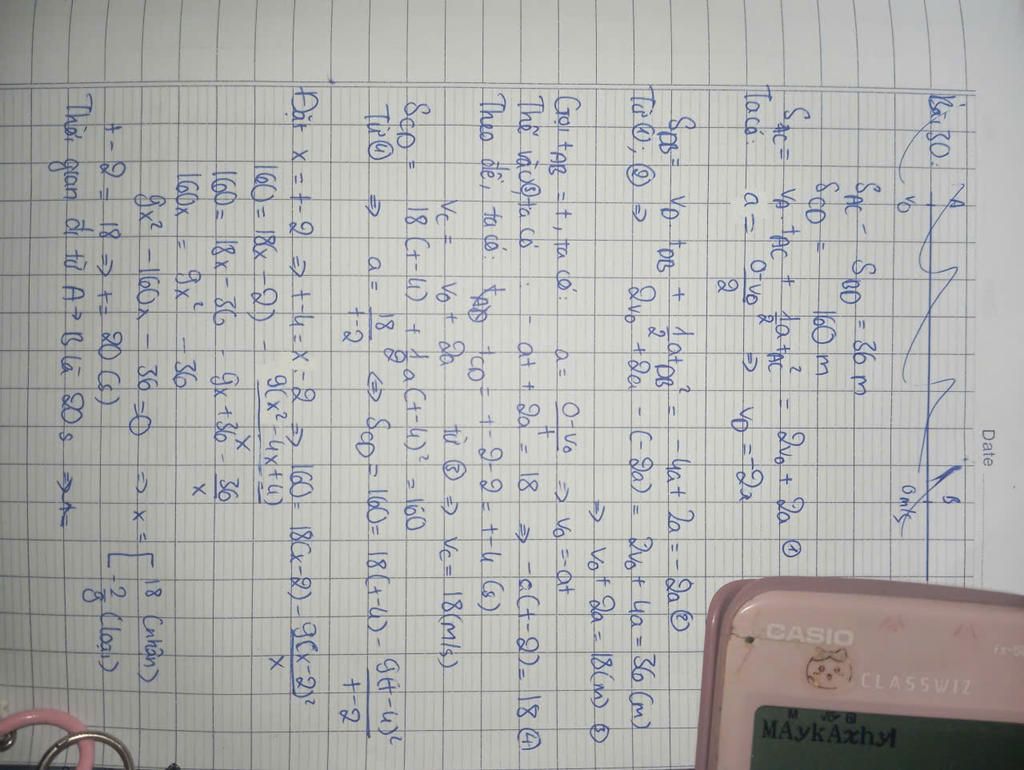 Date
Bài 30:
A
B
v₀
0m/s
S_AC - S_DB = 36 m
S_CD = 160 m
S_AC = v₀.t_AC + 1/2 a t_AC² = 2v₀ + 2a ①
Ta có: a = (0-v₀)/2 ⇒ v_D = -2a
S_DB = v_D.t_DB + 1/2 a t_DB² = -4a + 2a = -2a ②
Từ ①, ② ⇒ 2v₀ + 2a - (-2a) = 2v₀ + 4a = 36 (m)
⇒ v₀ + 2a = 18 (m) ③
Gọi t_AB = t, ta có: a = (0-v₀)/t ⇒ v₀ = -at
Thế vào ③ ta có: -at + 2a = 18 ⇒ -a(t-2) = 18 ④
Theo đề, ta có: t_CD = t-2-2 = t-4 (s)
v_C = v₀ + 2a từ ③ ⇒ v_C = 18 (m/s)
S_CD = 18(t-4) + 1/2 a(t-4)² = 160
Từ ④ ⇒ a = 18/(t-2) ⇔ S_CD = 160 = 18(t-4) - 9(t-4)²/(t-2)
Đặt x = t-2 ⇒ t-4 = x-2 ⇒ 160 = 18(x-2) - 9(x-2)²/x
160 = 18x-2) - 9(x²-4x+4)/x
160 = 18x - 36 - 9x + 36 - 36/x
160x = 9x² - 36
9x² - 160x - 36 = 0 ⇒ x = [ 18 (nhận)
-2/9 (loại)
t-2 = 18 ⇒ t = 20 (s)
Thời gian đi từ A → B là 20 s ⇒ t=
CASIO
CLASSWIZ